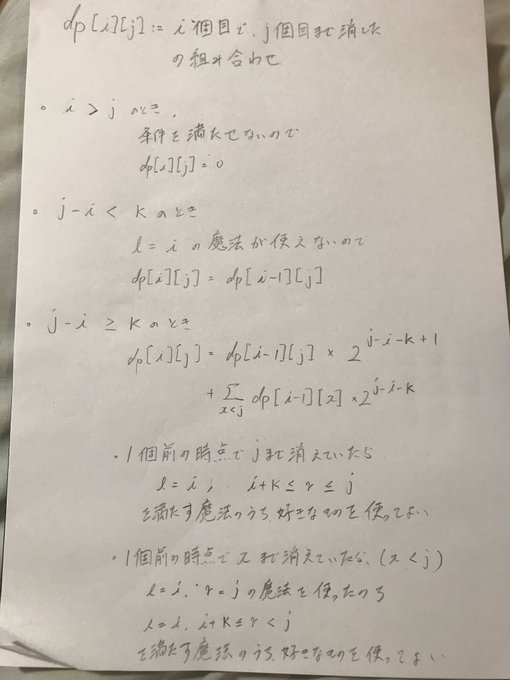 dp[i][j] := i個目で、j個目まで消した
の組み合わせ
。 i > j のとき、
条件を満たせないので
dp[i][j] = 0
。 j-i < K のとき
l = i の魔法が使えないので
dp[i][j] = dp[i-1][j]
。 j-i ≥ K のとき
dp[i][j] = dp[i-1][j] × 2^{j-i-K+1}
+ Σ_{x<j} dp[i-1][x] × 2^{j-i-K}
・1個前の時点で jまで消えていたら
l = i, i+K ≤ r ≤ j
を満たす魔法のうち、好きなものを使ってよい
・1個前の時点で xまで消えていたら、(x < j)
l = i, r = j の魔法を使ったのち
l = i, i+K ≤ r < j
を満たす魔法のうち、好きなものを使ってよい